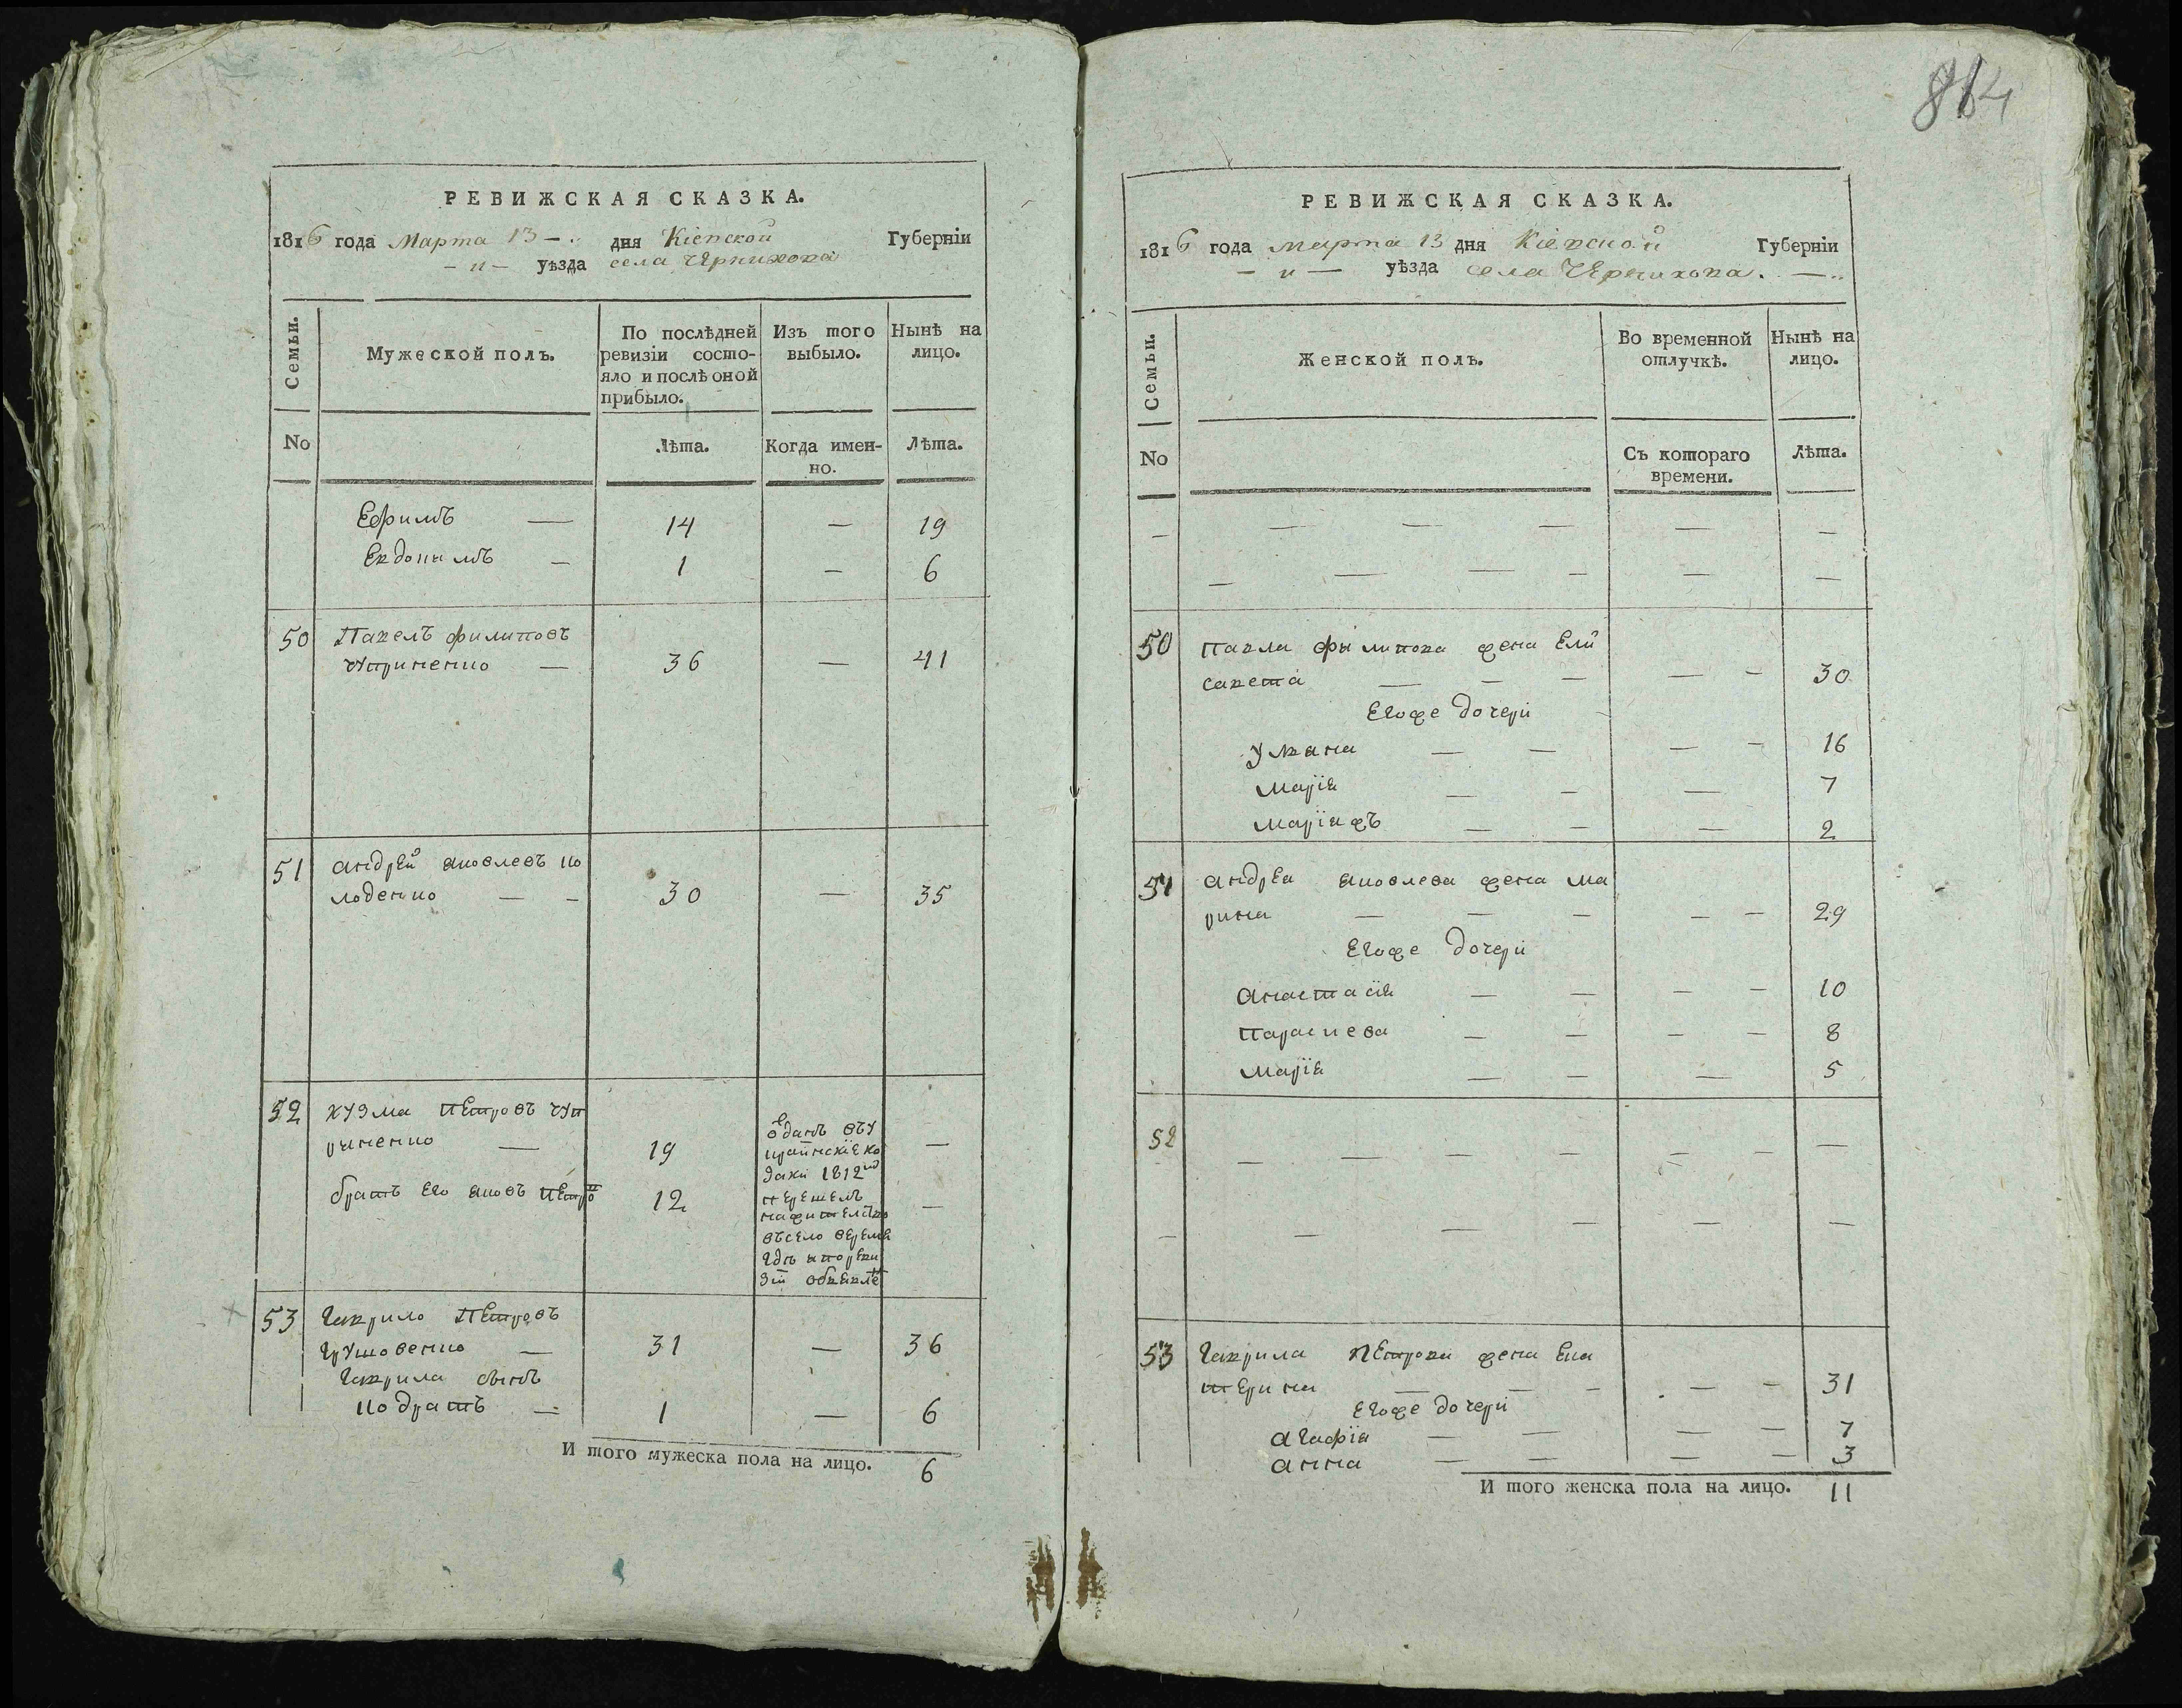 814
РЕВИЖСКАЯ СКАЗКА.
1816 года Марта 13 — дня Кіевской Губерніи
— и — уѣзда села Чернихова
Семьи.
Мужеской полъ.
По послѣдней
ревизіи состо-
яло и послѣ оной
прибыло.
Изъ того
выбыло.
Нынѣ на
лицо.
No
Лѣта.
Когда имен-
но.
Лѣта.
Ефимъ — 14 — 19
Евдокимъ — 1 — 6
50 Павелъ филиповъ
Чуприненко — 36 — 41
51 андрей яковлевъ ко
лоденко — — 30 — 35
52 кузма Петровъ чуп
риненко — 19 —
ѳданъ въу
краинскіе ко
заки 1812го
братъ его яковъ Петро 12 —
перешелъ
нажителство
въсело Веремя
гдѣ
зіи
53 Гаврило Петровъ
Грушовенко — 31 — 36
Гаврила сынъ
кодратъ — 1 — 6
И того мужеска пола на лицо. 6
РЕВИЖСКАЯ СКАЗКА.
1816 года марта 13 дня Кіевской Губерніи
— и — уѣзда села Чернихова. —
Семьи.
Женской полъ.
Во временной
отлучкѣ.
Нынѣ на
лицо.
No
Съ котораго
времени.
Лѣта.
— — — — — —
— — — — — —
50 павла филипова жена Ели
савета — — — — — 30
Егоже дочери
Улвана — — — — 16
Марія — — — 7
Маріяжъ — — — 2
51 андрея яковлева жена Ма
рина — — — — — 29
Егоже дочери
анастасія — — — — 10
Параскева — — — — 8
Марія — — — 5
52 — — — — — — —
— — — — — —
53 Гаврила Петрова жена Ека
терина — — — — — 31
Егоже дочери
агафія — — — — 7
анна — — — — 3
И того женска пола на лицо. 11